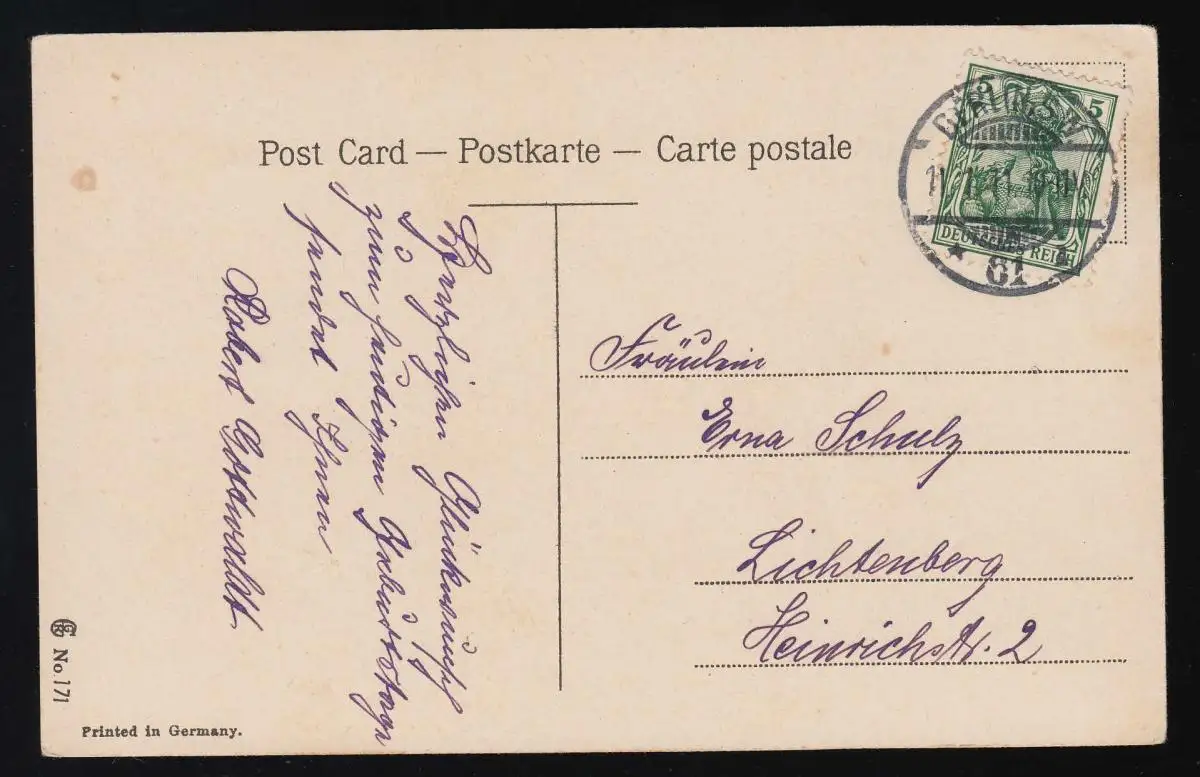 Post Card — Postkarte — Carte postale
5 5
DEUTSCHES REICH
BERLIN S.W.
11 11
* 61 *
Herzlichen Glückwunsch
zum heutigen Geburtstage
sendet Ihnen
Robert Gottwaldt.
Fräulein
Erna Schulz
Lichtenberg
Heinrichstr. 2
No. 171
Printed in Germany.